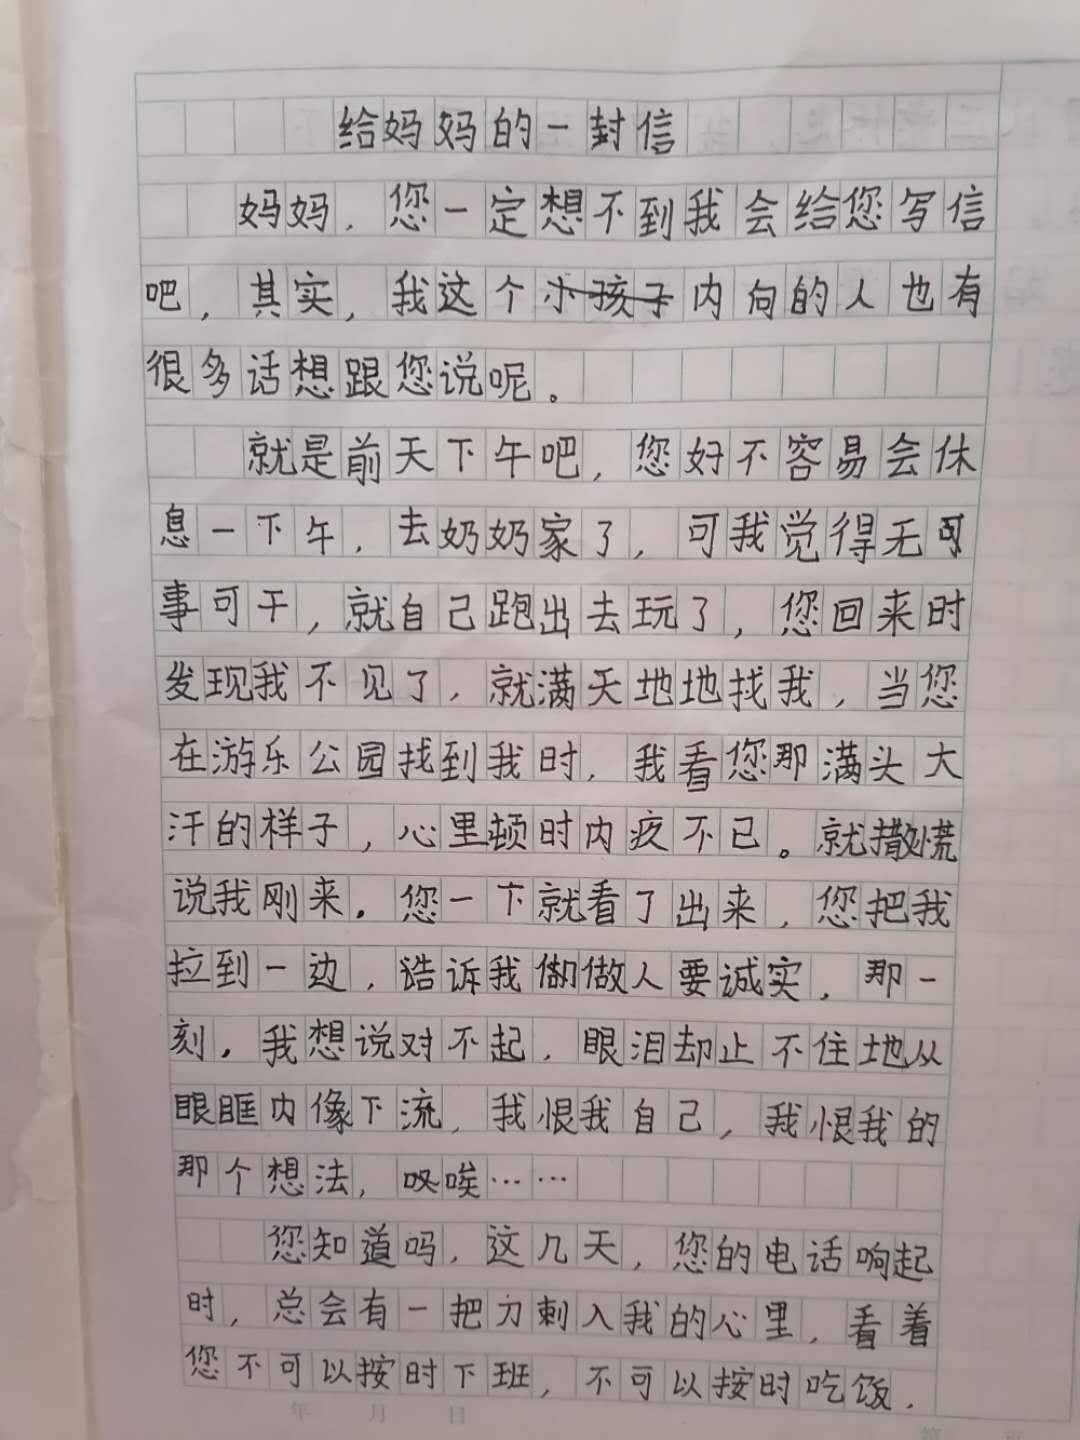 给妈妈的一封信
妈妈，您一定想不到我会给您写信
吧，其实，我这个小孩子内向的人也有
很多话想跟您说呢。
就是前天下午吧，您好不容易会休
息一下午，去奶奶家了，可我觉得无可
事可干，就自己跑出去玩了，您回来时
发现我不见了，就满天地地找我，当您
在游乐公园找到我时，我看您那满头大
汗的样子，心里顿时内疚不已。就撒谎
说我刚来。您一下就看了出来，您把我
拉到一边，诰诉我做人要诚实，那一
刻，我想说对不起，眼泪却止不住地从
眼眶内像下流，我恨我自己，我恨我的
那个想法，唉……
您知道吗，这几天，您的电话响起
时，总会有一把刀刺入我的心里，看着
您不可以按时下班，不可以按时吃饭，
年 月 日
第 页